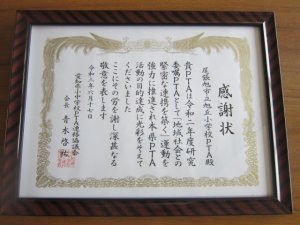 感謝状
尾張旭市立旭丘小学校PTA殿
貴PTAは令和二年度研究
委嘱PTAとして「地域社会との
緊密な連携を築く」運動を
強力に推進され本県PTA
活動の目的達成に光彩をそえて
くださいました
ここにその労を謝し深甚なる
敬意を表します
令和三年六月十七日
愛知県小中学校PTA連絡協議会
会長 青木啓